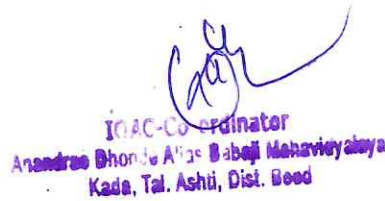 IQAC-Co-ordinator
Anandrao Dhonde Alias Babaji Mahavidyalaya
Kada, Tal. Ashti, Dist. Beed